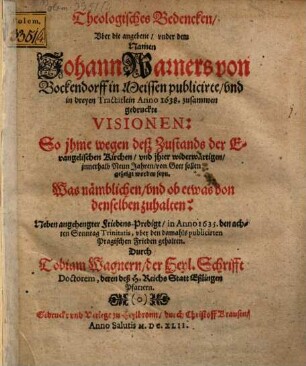 Polem. 3351/4
Theologisches Bedencken/
Vber die angebene/ vnder dem
Namen
Johann Warners von
Bockendorff in Meissen publicirte/ vnd
in dreyen Tractätlein Anno 1638. zusammen
gedruckte
VISIONEN:
So jhme wegen deß Zustands der E-
vangelischen Kirchen/ vnd jhrer widerwärtigen/
innerhalb Neun Jahren/ von Gott sollen
gezeigt worden seyn.
Was nämblichen/ vnd ob etwas von
denselben zuhalten?
Neben angehengter Friedens-Predigt/ in Anno 1635. den ach-
ten Sonntag Trinitatis, vber den damahls publicirten
Pragischen Frieden gehalten.
Durch
Tobiam Wagnern/ der Heyl. Schrifft
Doctorem, deren deß H. Reichs Statt Eßlingen
Pfarrern.
Getruckt vnd Verlegt zu Heylbronn/ durch Christoff Krausen/
Anno Salutis M. DC. XLII.